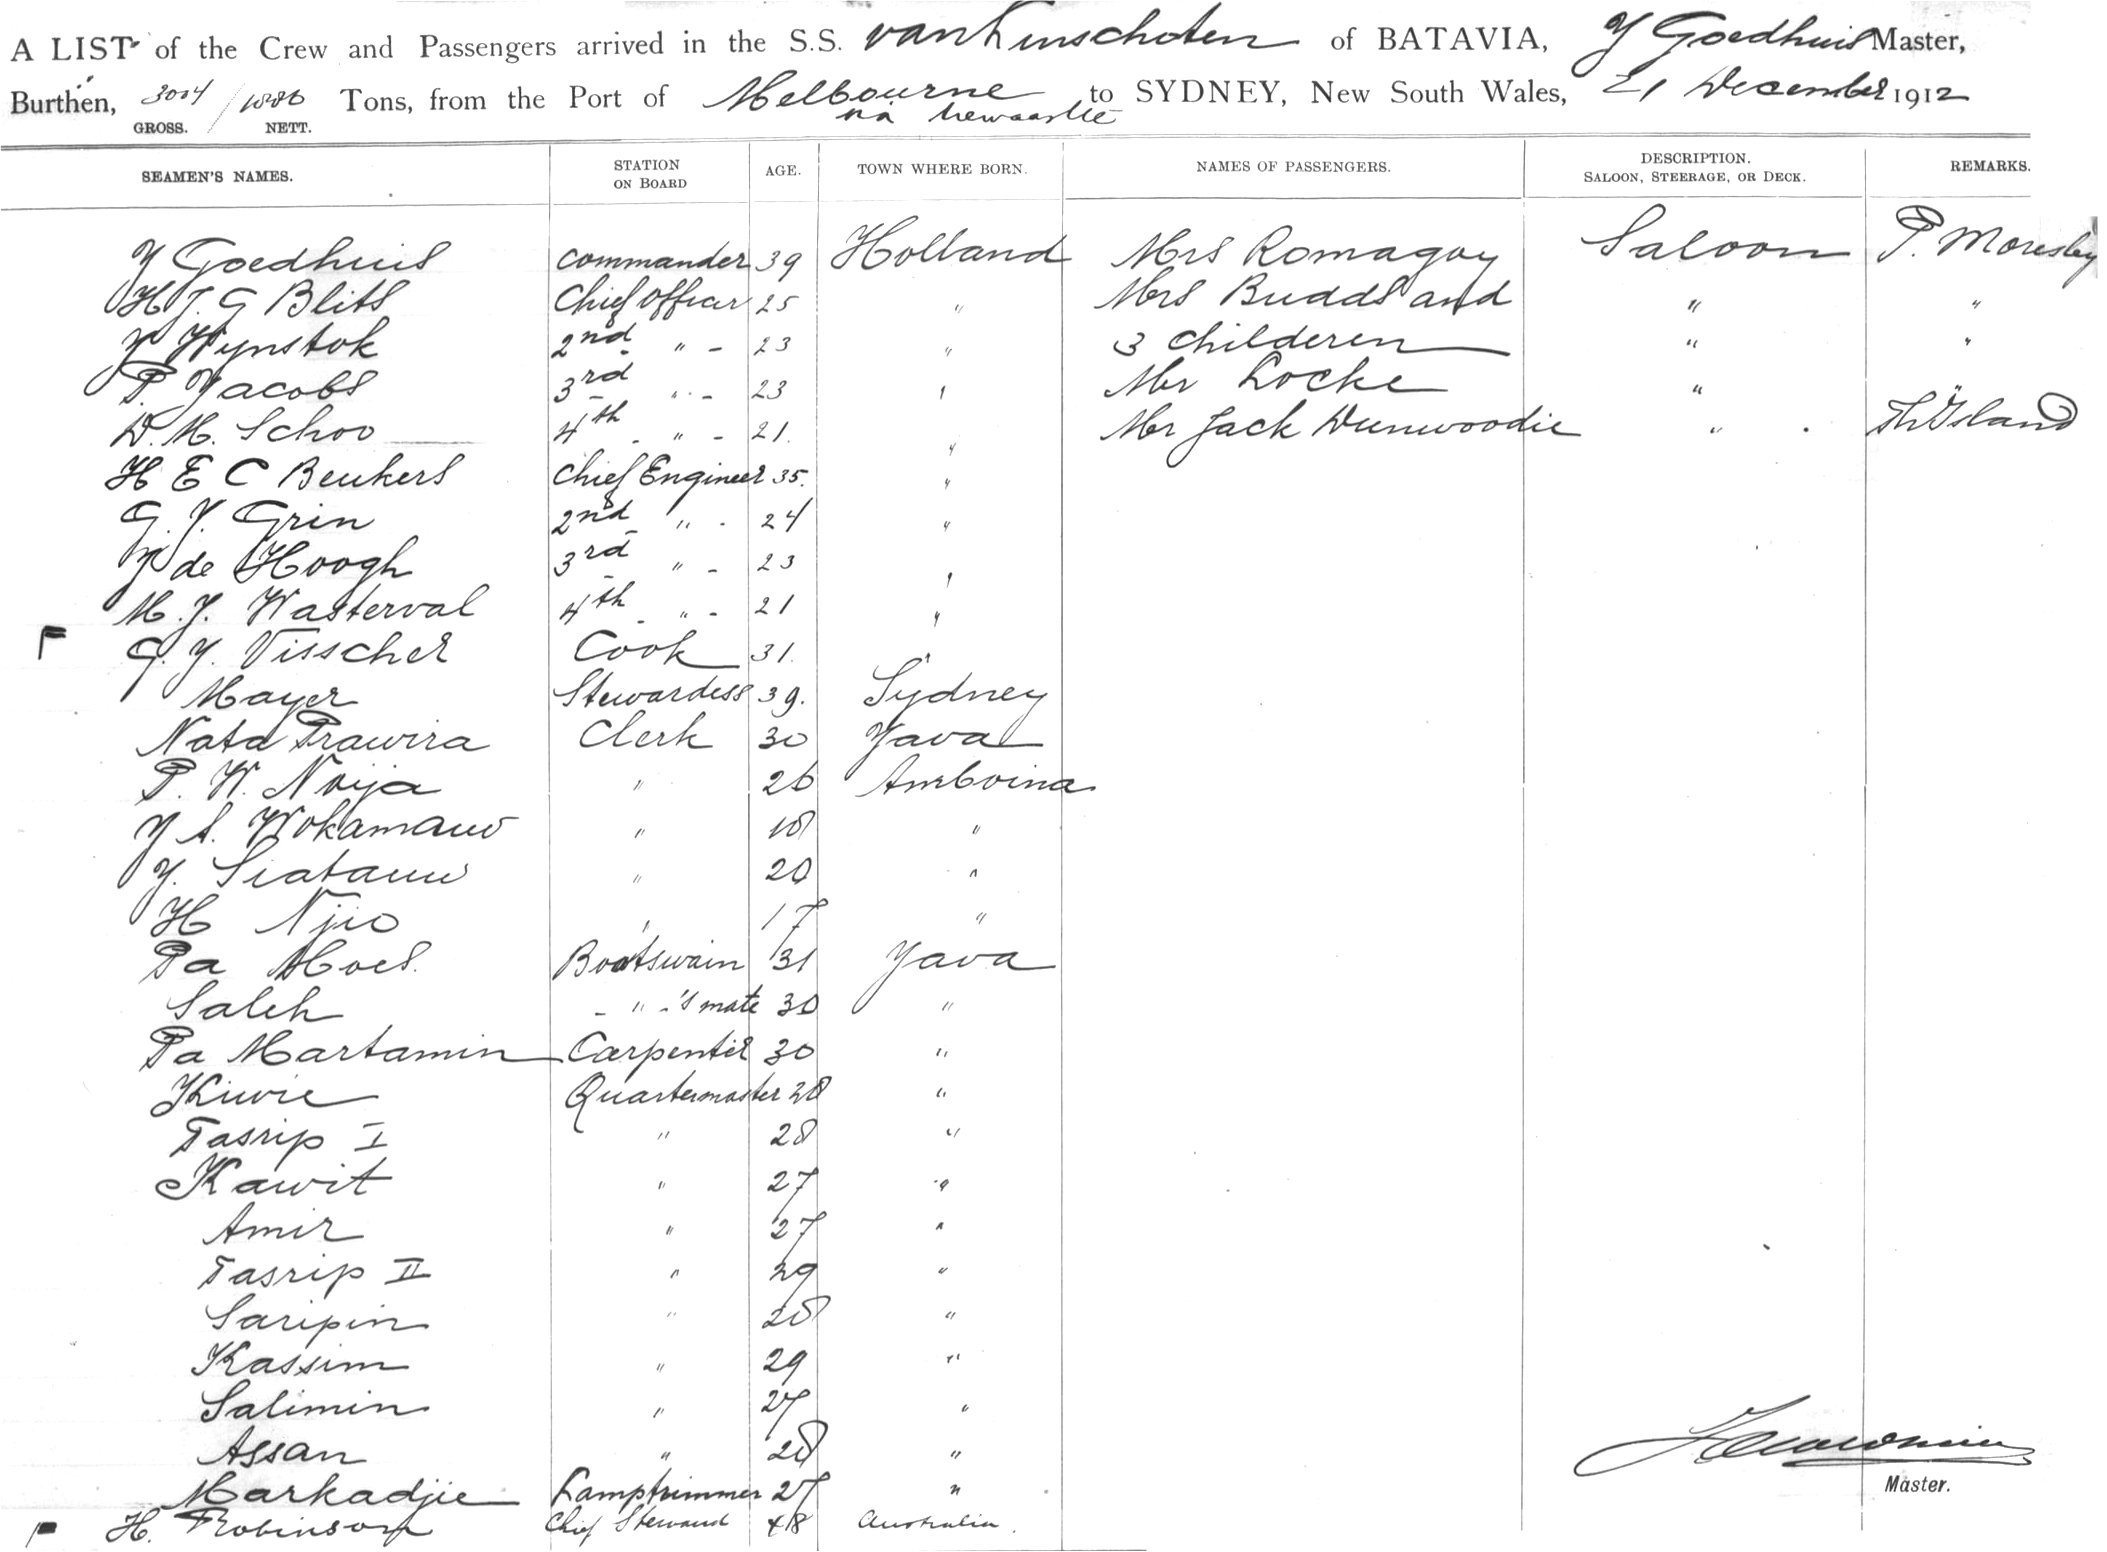 A LIST of the Crew and Passengers arrived in the S.S. van Kinschoten of BATAVIA, Y Goedhuis Master,
Burthen, 3004 / 1886 Tons, from the Port of Melbourne to SYDNEY, New South Wales, 21 December 1912
via Newcastle
GROSS. NETT.
SEAMEN'S NAMES. STATION ON BOARD AGE. TOWN WHERE BORN. NAMES OF PASSENGERS. DESCRIPTION. SALOON, STEERAGE, OR DECK. REMARKS.
Y Goedhuis commander 39 Holland Mrs Romagoy Saloon P. Moresby
H J G Blits Chief Officer 25 " Mrs Budds and " "
Y Wynstok 2nd " - 23 " 3 childeren " "
P. Yacobs 3rd " - 23 " Mr Locke "
D. M. Schoo 4th - " - 21. " Mr Jack Dunwoodie " Th Island
H E C Beukers Chief Engineer 35. "
G. Y. Grin 2nd " - 24 "
Y de Hoogh 3rd " - 23 "
M. Y. Wasterval 4th - " - 21 "
G. Y. Visscher Cook 31. "
Mayer Stewardess 39. Sydney
Nata Prawira Clerk 30 Yava
P. W. Noija " 26 Amboina
Y A. Wokamauw " 18 "
Y. Siatauw " 20 "
H Njio " 17 "
Pa Moes. Boatswain 31 Yava
Saleh - " - 's mate 30 "
Pa Martamin Carpenter 30 "
Kiwie Quartermaster 28 "
Tasrip I " 28 "
Kawit " 27 "
Amir " 27 "
Tasrip II " 29 "
Saripin " 28 "
Kassim " 29 "
Salimin " 27 "
Assan " 28 "
Markadjie Lamptrimmer 27 "
Master.
H. Robinson Chief Steward 48 Australia.